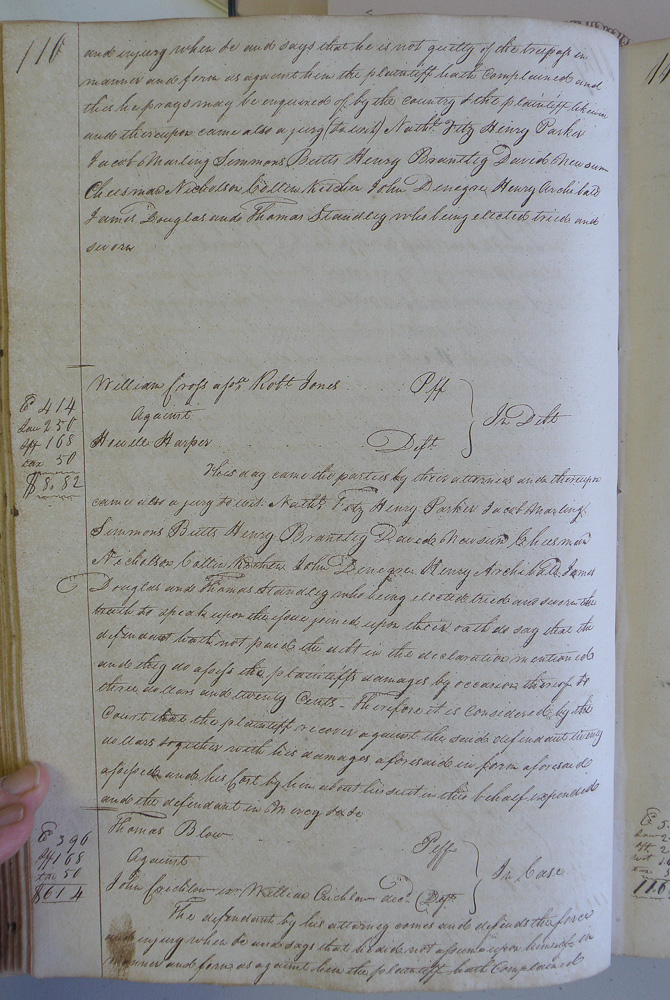 110
and injury when &c and says that he is not guilty of the trespass in
manner and form as against him the plaintiff hath complained and
this he prays may be enquired of by the country & the plaintiff likewise
and thereupon came also a jury (to wit) Nathl. Fitz Henry Parker
Jacob Marling Simmons Butts Henry Brantley David Newsum
Cheesman Nicholson Collin Kitchen John Denegre Henry Archibald
James Douglas and Thomas Standley who being elected tried and
sworn
William Cross asse. Robt. Jones Plff
Against
In Debt
Howell Harper Deft.
C 414
Law 250
Aff 168
tax 50
$8.82
This day came the parties by their attornies and thereupon
came also a jury to wit. Nathl. Fitz Henry Parker Jacob Marling
Simmons Butts Henry Brantley David Newsum Cheesman
Nicholson Collin Kitchen John Denegre Henry Archibald James
Douglas and Thomas Standley who being elected tried and sworn the
truth to speak upon the issue joined upon their oath do say that the
defendant hath not paid the debt in the declaration mentioned
and they do assess the plaintiffs damages by occasion thereof to
three dollars and twenty Cents - Therefore it is considered by the
Court that the plaintiff recover against the said defendant twenty
dollars together with his damages aforesaid in form aforesaid
assessed and his Cost by him about his suit in this behalf expended
and the defendant in Mercy &c
Thomas Blow Plff
Against
In Case
John Crichlow Willis Crichlow decd. Deft
C 396
Aff 168
tax 50
$6.14
The defendant by his attorney comes and defends the force
and injury when &c and says that he did not assume upon himself in
manner and form as against him the plaintiff hath complained